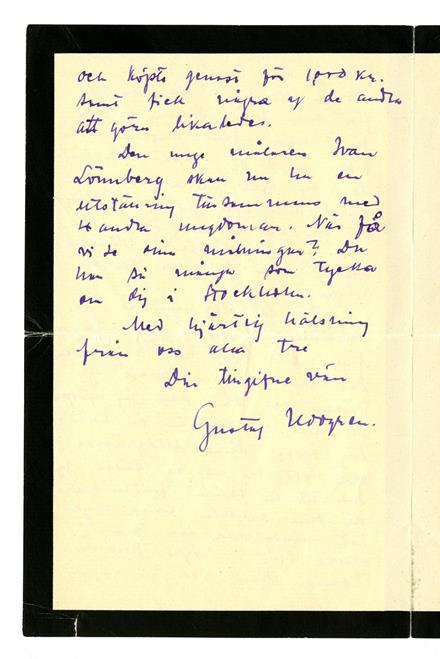 och köpte genast för 1000 kr.
samt fick några af de andra
att göra likaledes.
Den unge målaren Ivan
Lönnberg skau nu ha en
utställning tillsammans med
4 andra ungdomar. När få
vi se dina målningar? Du
har så många som tycka
om dig i Stockholm.
Med hjärtlig hälsning
från oss alla tre
Din tillgifne vän
Gustaf Uddgren.